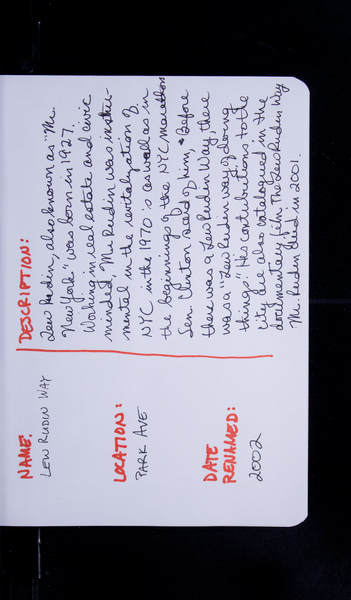 NAME:
LEW RUDIN WAY
LOCATION:
PARK AVE
DATE
RENAMED:
2002
DESCRIPTION:
Lew Rudin, also known as "Mr.
New York" was born in 1927.
Working in real estate and civic
minded, Mr. Rudin was instru-
mental in the revitalization of
NYC in the 1970's as well as in
the beginnings of the NYC marathon
Sen. Clinton said of him, "Before
there was a Lew Rudin Way, there
was a "Lew Rudin way of doing
things." His contributions to the
city are also catalogued in the
documentary film The Lew Rudin Way
Mr. Rudin died in 2001.